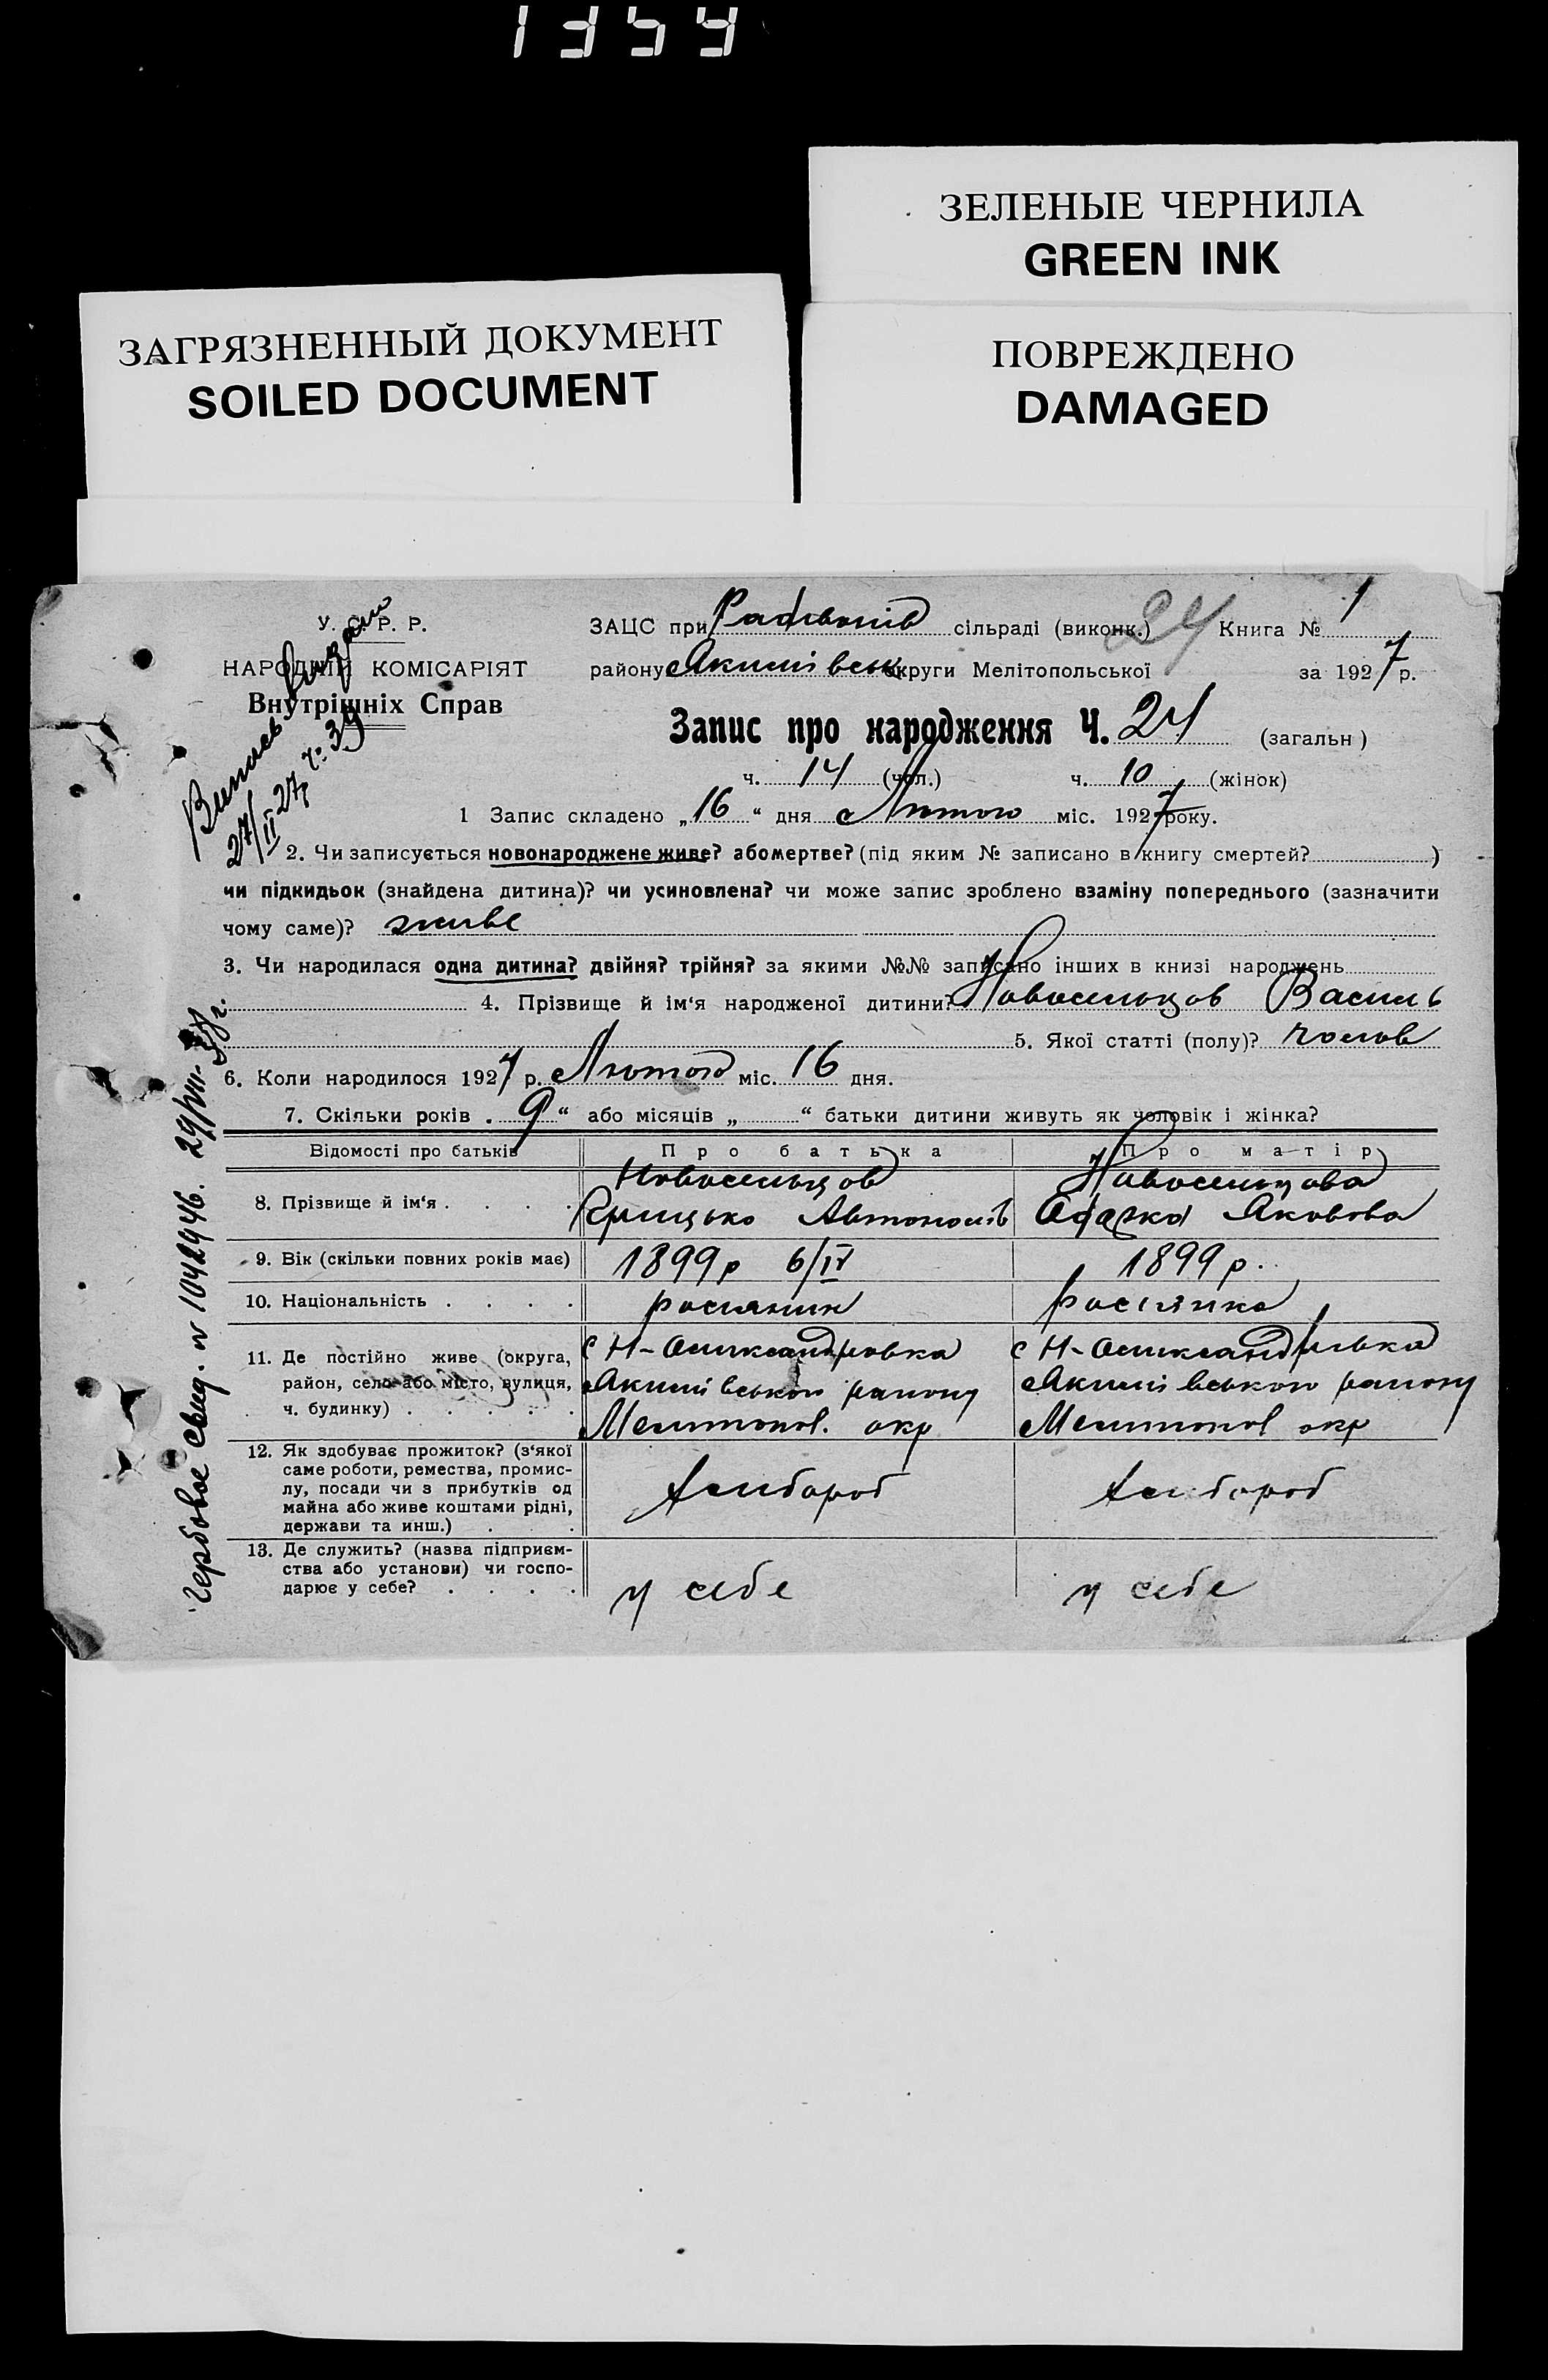 1354
ЗЕЛЕНЫЕ ЧЕРНИЛА
GREEN INK
ЗАГРЯЗНЕННЫЙ ДОКУМЕНТ
SOILED DOCUMENT
ПОВРЕЖДЕНО
DAMAGED
У. С. Р. Р.
НАРОДНІЙ КОМІСАРІЯТ
Внутрішніх Справ
ЗАЦС при сільраді (виконк.) 24 Книга № 1
району Якимівськ округи Мелітопольської за 1927 р.
Запис про народження Ч. 24 (загальн)
ч. 14 (чол.) ч. 10 (жінок)
1 Запис складено „16“ дня Лютого міс. 1927 року.
2. Чи записується новонароджене живе? або мертве? (під яким № записано в книгу смертей? )
чи підкидьок (знайдена дитина)? чи усиновлена? чи може запис зроблено взаміну попереднього (зазначити
чому саме)? живе
3. Чи народилася одна дитина? двійня? трійня? за якими №№ записано інших в книзі народжень
4. Прізвище й ім'я народженої дитини? Новосельцов Василь
5. Якої статті (полу)? чолов
6. Коли народилося 1927 р. Лютого міс. 16 дня.
7. Скільки років „9“ або місяців „ “ батьки дитини живуть як чоловік і жінка?
Відомості про батьків Про батька Про матір
8. Прізвище й ім'я . . . .
Новосельцов
Грицько Автономів
Новосельцова
Яковова
9. Вік (скільки повних років має) 1899 р 6/IV 1899 р.
10. Національність . . . . росіянин росіянка
11. Де постійно живе (округа,
район, село або місто, вулиця,
ч. будинку) . . . . .
с Н-Олександровка
Якимівського району
Мелитопол. окр
с Н-Олександровка
Якимівського району
Мелитопол окр
12. Як здобуває прожиток? (з'якої
саме роботи, ремества, промис-
лу, посади чи з прибутків од
майна або живе коштами рідні,
держави та инш.) . .
хлібороб
хлібороб
13. Де служить? (назва підприєм-
ства або установи) чи госпо-
дарює у себе? . . . .
у себе
у себе
27/II 27р ч. 39
Гербовое свид. № 1042446. 29/VIII-